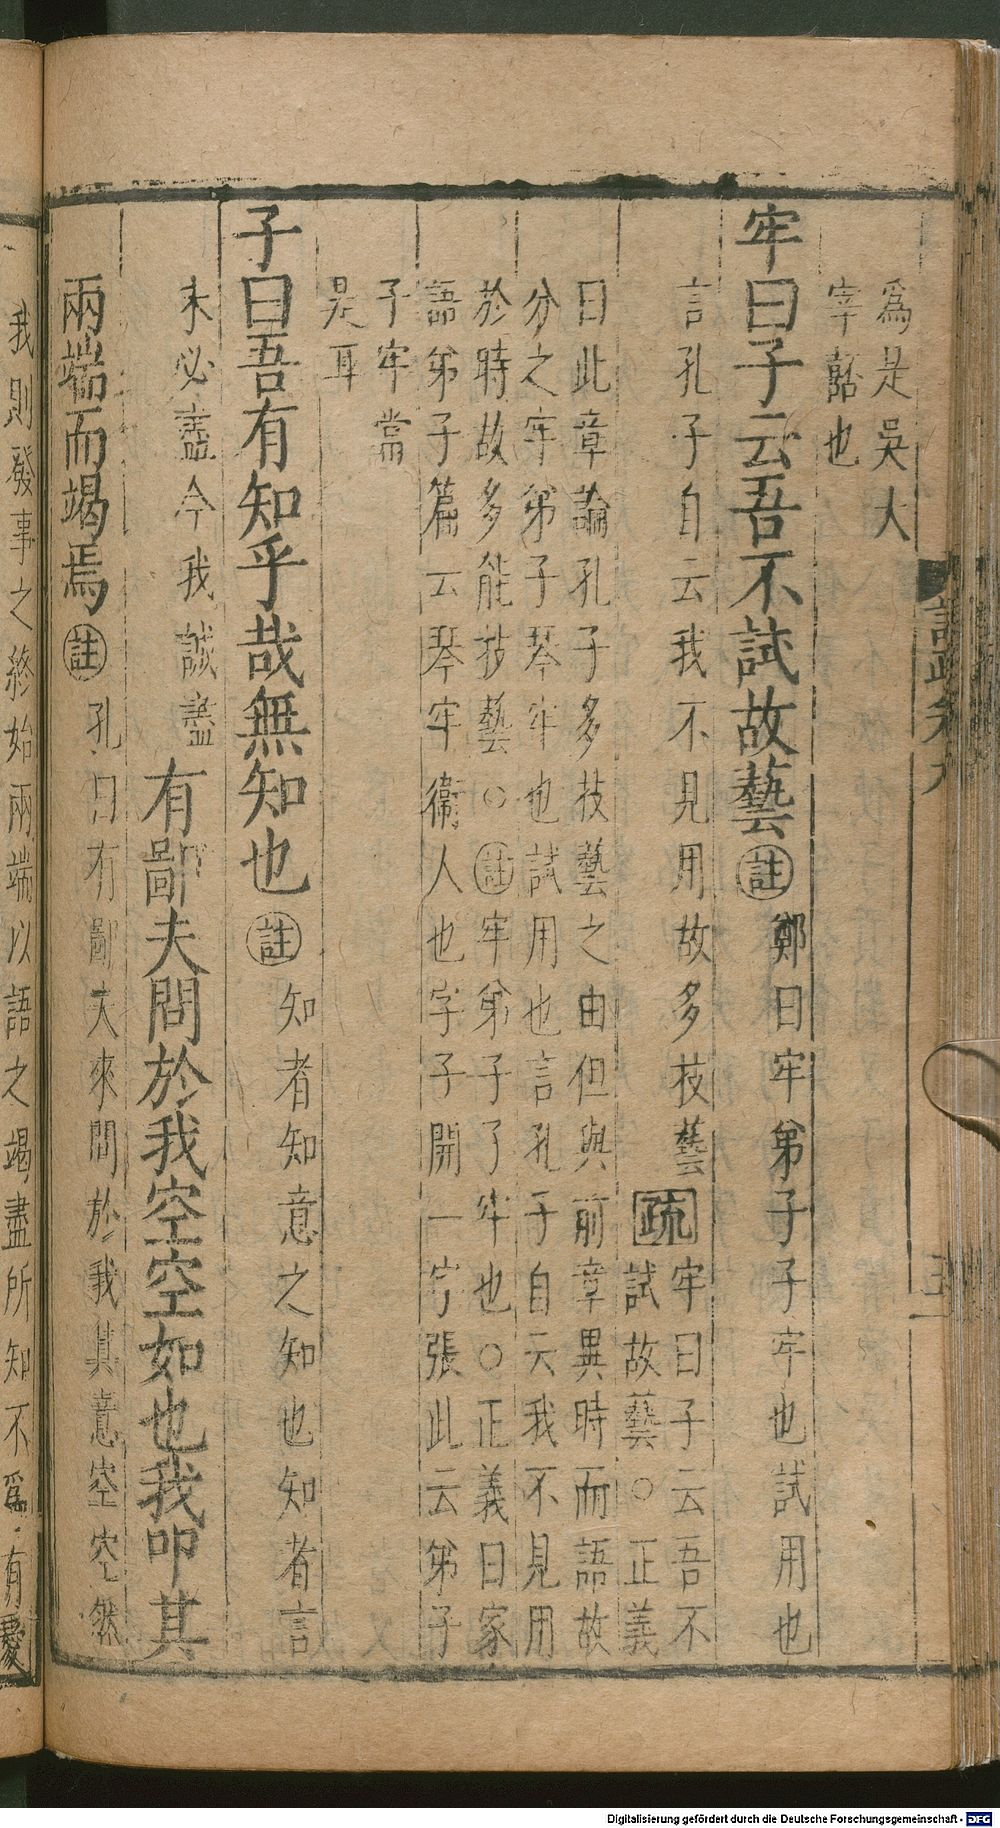 爲是吳大
宰嚭也
牢曰子云吾不試故藝註鄭曰牢弟子子牢也試用也
言孔子自云我不見用故多技藝疏牢曰子云吾不
試故藝○正義
曰此章論孔子多技藝之由但與前章異時而語故
分之牢弟子琴牢也試用也言孔子自云我不見用
於時故多能技藝○註牢弟子子牢也○正義曰家
語弟子篇云琴牢衞人也字子開一字張此云弟子
子牢當
是耳
子曰吾有知乎哉無知也註知者知意之知也知者言
未必盡今我誠盡有鄙夫問於我空空如也我叩其
兩端而竭焉註孔曰有鄙夫來問於我其意空空然
我則發事之終始兩端以語之竭盡所知不爲有
Digitalisierung gefördert durch die Deutsche Forschungsgemeinschaft - DFG